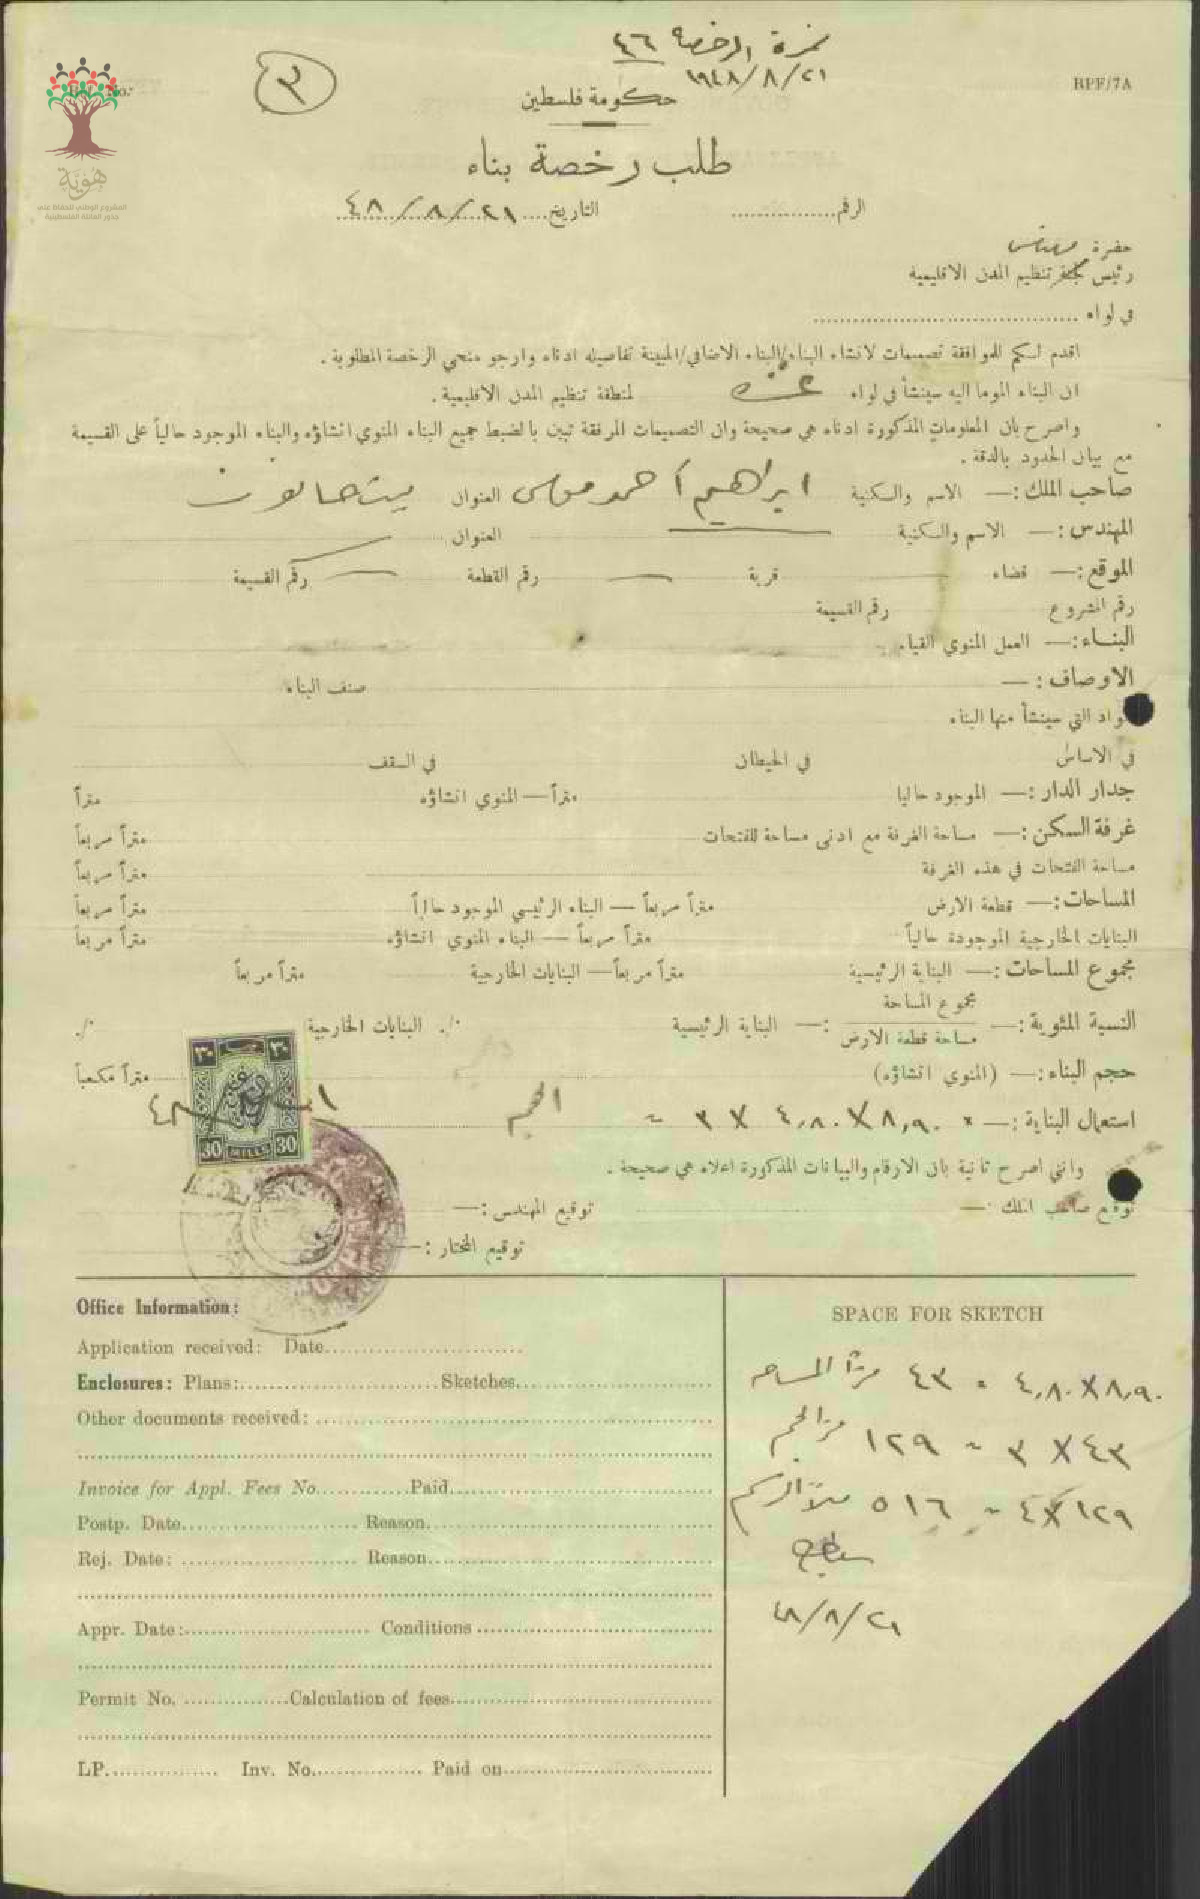 نمرة الرخصة ٤٦
١٩٤٨/٨/٢١
٣
No.
RPF/7A
هوية
المشروع الوطني للحفاظ على
جذور العائلة الفلسطينية
حكومة فلسطين
طلب رخصة بناء
الرقم ............... التاريخ .... ٤٨/٨/٢١
حضرة مهندس
رئيس لجنة تنظيم المدن الاقليمية
في لواء
اقدم لكم للموافقة تصميمات لانشاء البناء/البناء الاضافي/المبينة تفاصيله ادناه وارجو منحي الرخصة المطلوبة .
ان البناء الموما اليه سينشأ في لواء غزه لمنطقة تنظيم المدن الاقليمية .
واصرح بان المعلومات المذكورة ادناه هي صحيحة وان التصميمات المرفقة تبين بالضبط جميع البناء المنوي انشاؤه والبناء الموجود حالياً على القسيمة
مع بيان الحدود بالدقة .
صاحب الملك :— الاسم والسكنية ابراهيم احمد موسى العنوان بيت حانون
المهندس :— الاسم والسكنية العنوان
الموقع :— قضاء قرية رقم القطعة رقم القسيمة
رقم المشروع رقم القسيمة
البناء :— العمل المنوي القيام
الاوصاف :— صنف البناء
واد التي سينشأ منها البناء
في الاساس في الحيطان في السقف
جدار الدار :— الموجود حاليا متراً — المنوي انشاؤه متراً
غرفة السكن :— مساحة الغرفة مع ادنى مساحة للفتحات متراً مربعاً
مساحة الفتحات في هذه الغرفة متراً مربعاً
المساحات :— قطعة الارض متراً مربعاً — البناء الرئيسي الموجود حالياً متراً مربعاً
البنايات الخارجية الموجودة حالياً متراً مربعاً — البناء المنوي انشاؤه متراً مربعاً
مجموع المساحات :— البناية الرئيسية متراً مربعاً — البنايات الخارجية متراً مربعاً
النسبة المئوية :— مجموع المساحة / مساحة قطعة الارض :— البناية الرئيسية ٪. البنايات الخارجية ٪.
حجم البناء :— (المنوي انشاؤه) متراً مكعباً
استعمال البناية :— ٨,٩٠ X ٤,٨٠ X ٣ = الحجم
٣٠ ٣٠
30 MILLS 30
وانني اصرح ثانية بان الارقام والبيانات المذكورة اعلاه هي صحيحة .
توقيع صاحب الملك :— توقيع المهندس :—
توقيع المختار :—
Office Information:
Application received: Date
Enclosures: Plans: Sketches
Other documents received:
Invoice for Appl. Fees No. Paid
Postp. Date Reason
Rej. Date: Reason
Appr. Date: Conditions
Permit No. Calculation of fees
LP. Inv. No. Paid on
SPACE FOR SKETCH
٨,٩٠ X ٤,٨٠ = ٤٣ متراً المساحه
٤٣ X ٣ = ١٢٩ متر الحجم
١٢٩ X ٤ = ٥١٦ ملاً الرسم
٤٨/٨/٢١